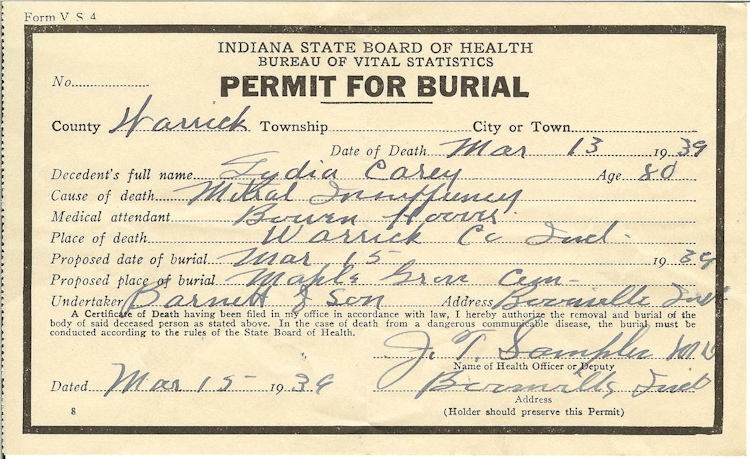 Form V. S. 4
INDIANA STATE BOARD OF HEALTH
BUREAU OF VITAL STATISTICS
No.
PERMIT FOR BURIAL
County Warrick Township City or Town
Date of Death Mar 13 1939
Decedent's full name Lydia Carey Age 80
Cause of death Mitral Insuffiency
Medical attendant Bowen Hoover
Place of death Warrick Co Ind.
Proposed date of burial Mar 15 1939
Proposed place of burial Maple Grove Cem
Undertaker Barnett & Son Address Boonville Ind
A Certificate of Death having been filed in my office in accordance with law, I hereby authorize the removal and burial of the
body of said deceased person as stated above. In the case of death from a dangerous communicable disease, the burial must be
conducted according to the rules of the State Board of Health.
J. T. Samples M D
Name of Health Officer or Deputy
Dated Mar 15 1939 Boonville, Ind
Address
8 (Holder should preserve this Permit)